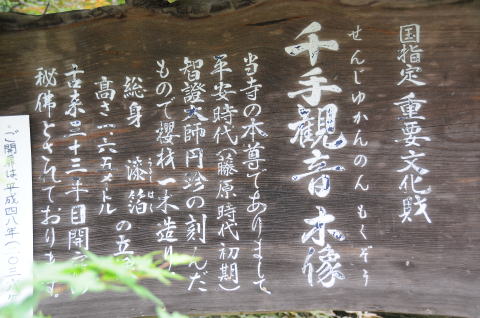 国指定 重要文化財
せんじゅかんのん もくぞう
千手觀音木像
当寺の本尊でありまして
平安時代(籐原時代初期)
智證大師円珍の刻んだ
もので櫻材一木造り
総身 漆箔
うるし はく
高さ一、六五メートル
古来三十三年目開
秘佛とされております。
ご開扉は、平成四八年(二〇三六